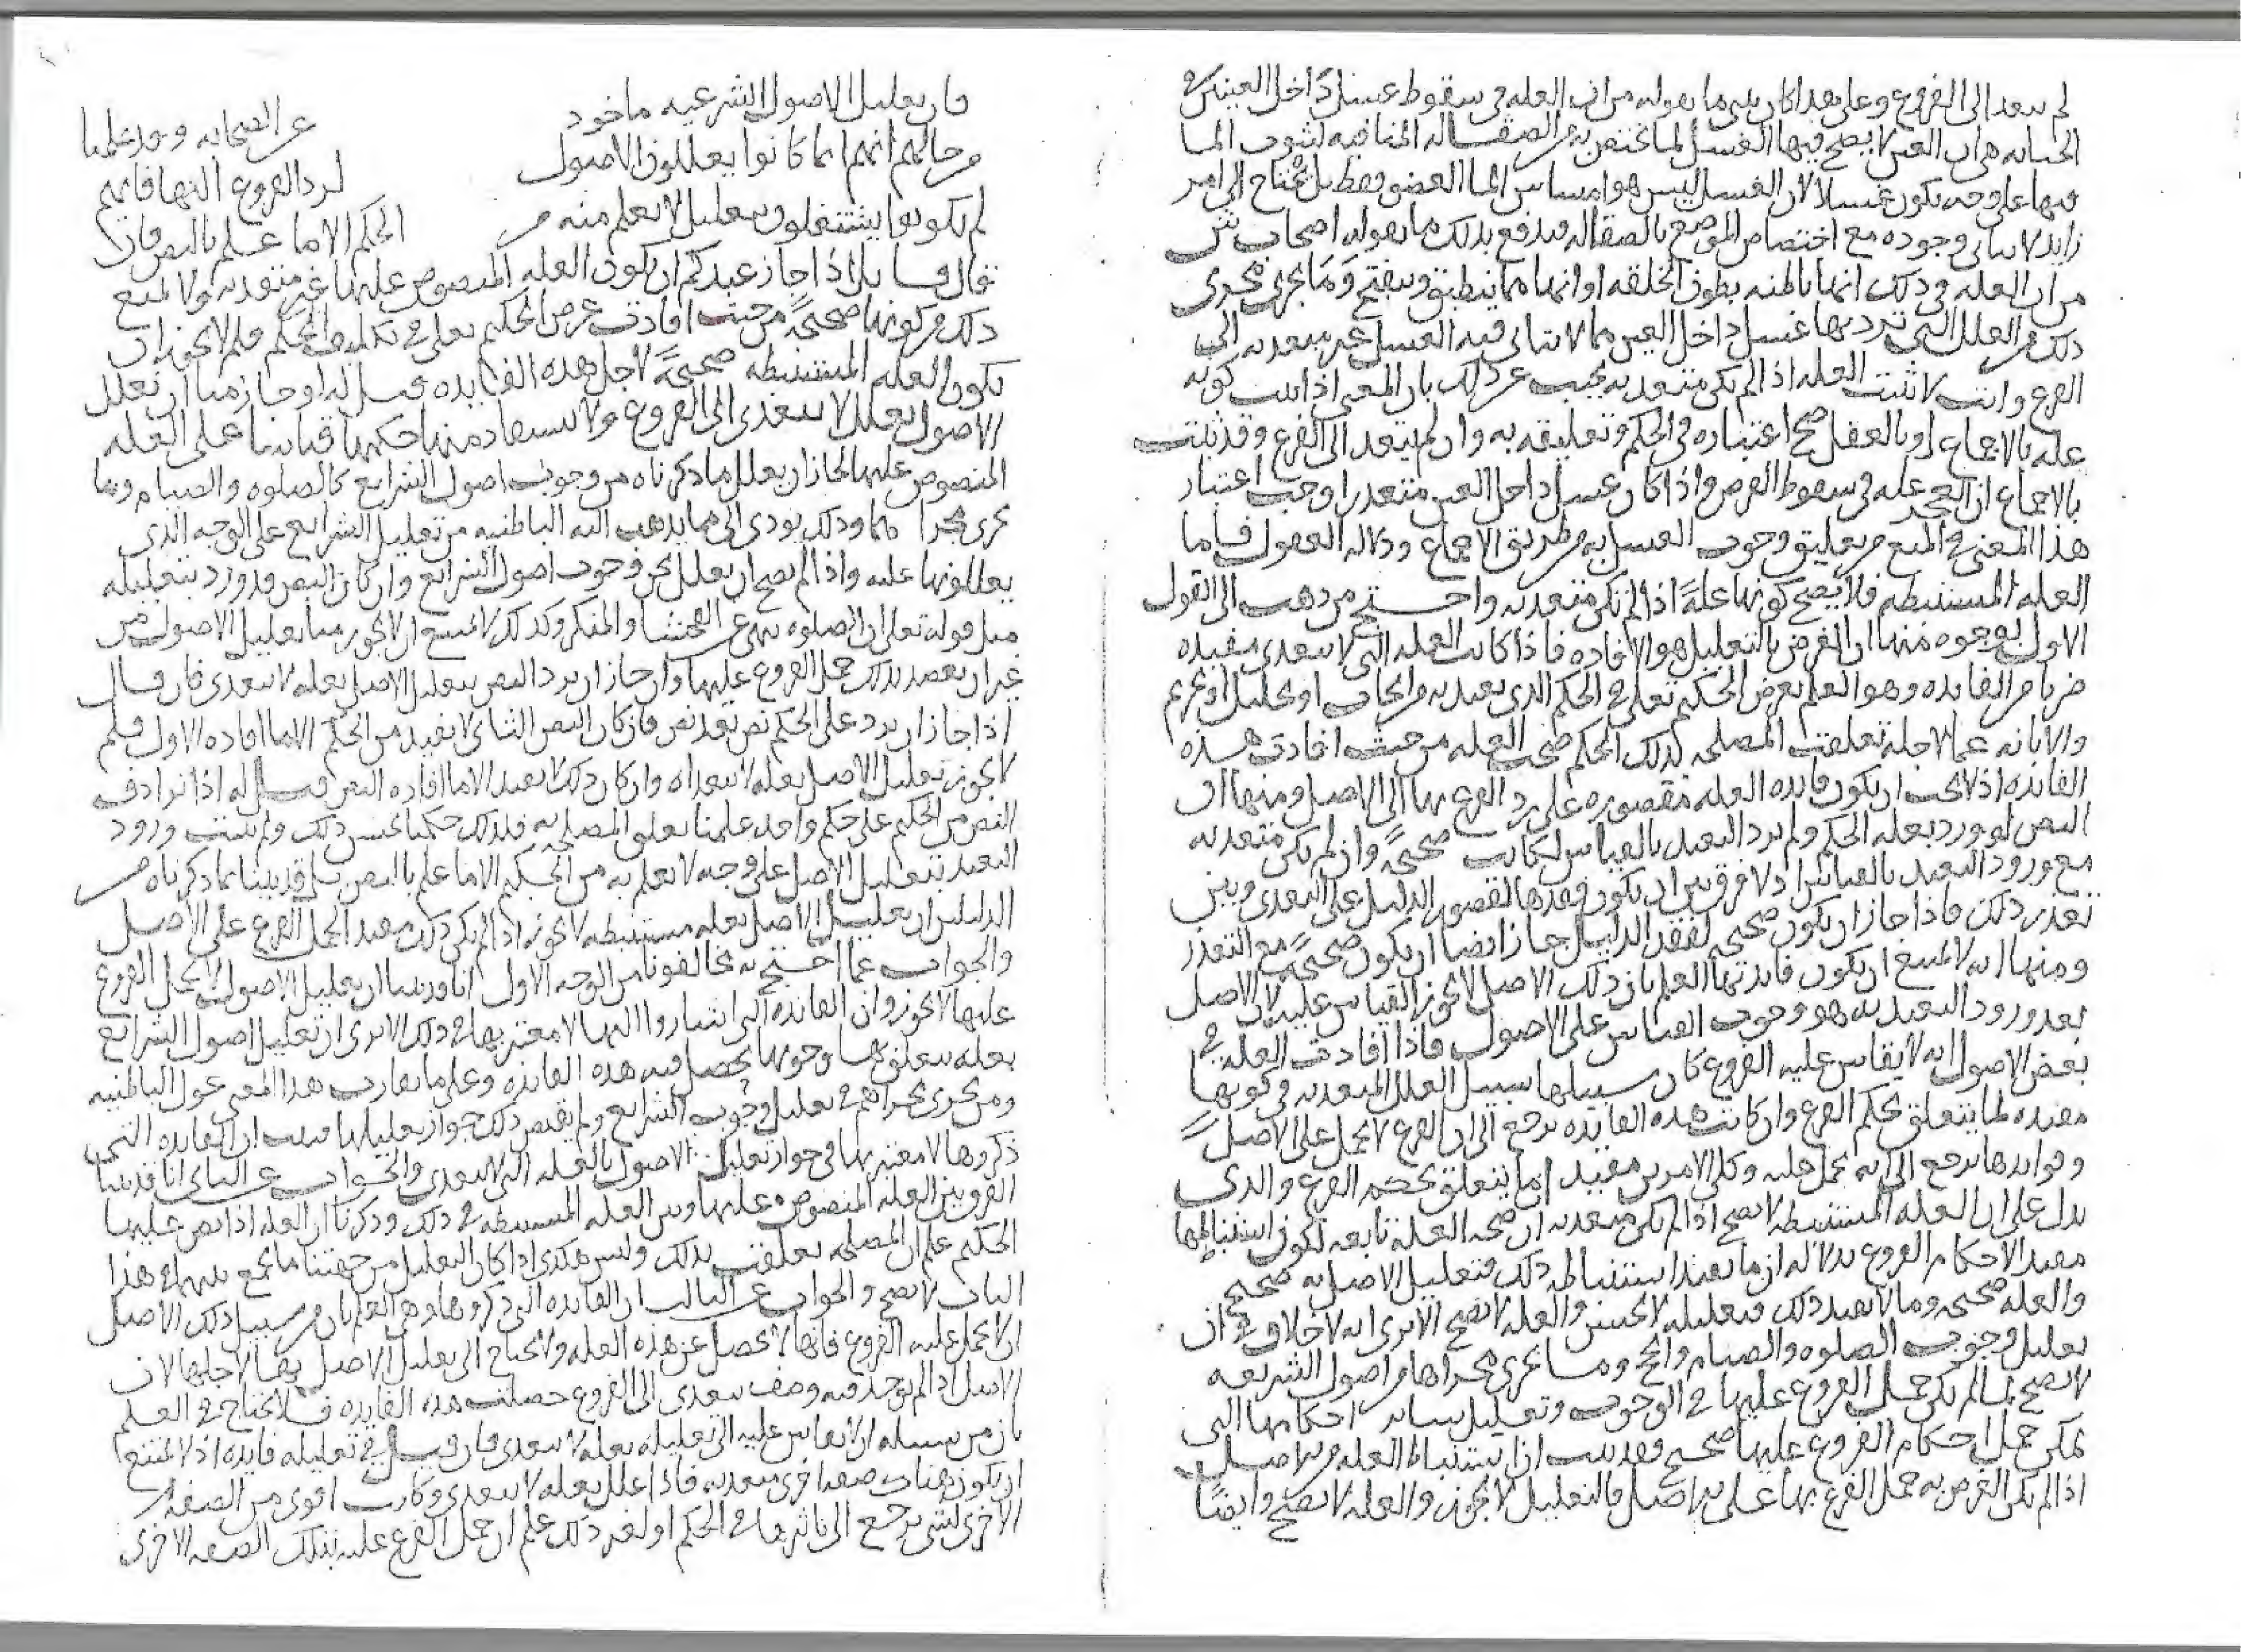 لم يتعد الى الفروع وعلى هذا كان يبنى ما يقوله من ان العله فى سقوط غسل داخل العينين فى
الجنابه هى ان العين لا يصح فيها الغسل لما تختص به من الصقاله المنافيه لثبوت الما
فيها على وجه يكون غسلا لان الغسل ليس هو امساس الما العضو فقط بل يحتاج الى امر
زايد لا يتاتى وجوده مع اختصاص الموضع بالصقاله ويدفع بذلك ما يقوله اصحاب ش
من ان العله فى ذلك انها باطنه بطون الخلقه او انها مما ينطبق وينفتح وما يجرى مجرى
ذلك من العلل التى ترد بها غسل داخل العين مما لا يتاتى فيه الغسل غير متعديه الى
الفرع وانت لا تثبت العله اذا لم تكن متعديه يجيب عن ذلك بان المعنى اذا ثبت كونه
عله بالاجماع او بالعقل صح اعتباره فى الحكم وتعليقه به وان لم يتعد الى الفرع وقد ثبت
بالاجماع ان العجز عله فى سقوط الفرض واذا كان غسل داخل العين متعذرا وجب اعتبار
هذا المعنى فى المنع من تعليق وجوب الغسل به من طريق الاجماع ودلاله العقول فاما
العله المستنبطه فلا يصح كونها علةً اذا لم تكن متعديه واحتج من ذهب الى القول
الاول بوجوه منها ان الغرض بالتعليل هو الافاده فاذا كانت العله التى لا تتعدى مفيده
ضربا من الفايده وهو العلم بغرض الحكيم تعلى فى الحكم الذى تعبد به من ايجاب او تحليل او تحريم
والابانه عما لاجله تعلقت المصلحه بذلك الحكم صحت العله من حيث افادت هذه
الفايده اذ لا يجب ان يكون فايده العله مقصوره على رد الفرع بها الى الاصل ومنها ان
النص لو ورد بعله الحكم ولم يرد التعبد بالقياس لكانت صحيحةً وان لم تكن متعديه
مع ورود التعبد بالقياس اذ لا فرق بين ان يكون فقدها لقصور الدليل على التعدى وبين
تعذر ذلك فاذا جاز ان يكون صحيحه لفقد الدليل جاز ايضا ان يكون صحيحةً مع التعذر
ومنها انه لا يمتنع ان يكون فايدتها العلم بان ذلك الاصل لا يجوز القياس عليه لان الاصل
بعد ورود التعبد به هو وجوب القياس على الاصول فاذا افادت العله فى
بعض الاصول انه لا يقاس عليه الفروع كان سبيلها سبيل العلل المتعديه فى كونها
مفيده لما يتعلق بحكم الفرع وان كانت هذه الفايده ترجع الى ان الفرع لا يحمل على الاصل
وفوايدها ترجع الى انه يحمل عليه وكلى الامرين مفيد لما يتعلق بحكم الفرع والذى
يدل على ان العله المستنبطه لا تصح اذا لم تكن متعديه ان صحه العلة تابعه لكون استنباطها
مفيدا لاحكام الفروع بدلاله ان ما يفيد استنباطه ذلك فتعليل الاصل به صحيح
والعله صحيحه وما لا يفيد ذلك فتعليله لا يحسن والعله لا تصح الا ترى انه لا خلاف فى ان
تعليل وجوب الصلوه والصيام والحج وما يجرى مجراها من اصول الشريعه
لا يصح لما لم يكن حمل الفروع عليها فى الوجوب وتعليل ساير احكامها التى
يمكن حمل احكام الفروع عليها صحيح فقد ثبت ان استنباط العله من الاصل
اذا لم يكن الغرض به حمل الفرع بها على الاصل فالتعليل لا يجوز والعله لا تصح وايضًا
فان تعليل الاصول الشرعيه ماخوذ عن الصحابه وقد علمنا
من حالهم انهم انما كانوا يعللون الاصول لرد الفروع اليها فانهم
لم يكونوا يشتغلون بتعليل لا يعلم منه من الحكم الا ما علم بالنص فان
قال قايل اذا جاز عندكم ان يكون العله المنصوص عليها غير متعديه ولا يمنع
ذلك من كونها صحيحةً من حيث افادت غرض الحكيم تعلى فى تكليف الحكم فلم لا يجوز ان
يكون العله المستنبطه صحيحةً لاجل هذه الفايده قيل له لو جاز منا ان نعلل
الاصول بعلل لا تتعدى الى الفروع ولا يستفاد منها حكمها قياسا على العله
المنصوص عليها لجاز ان نعلل ما ذكرناه من وجوب اصول الشرايع كالصلوه والصيام وما
يجرى مجراهما وذلك يودى الى ما يذهب اليه الباطنيه من تعليل الشرايع على الوجه الذى
يعللونها عليه واذا لم يصح ان نعلل نحن وجوب اصول الشرايع وان كان النص قد ورد بتعليله
مثل قوله تعلى ان الصلوه تنهى عن الفحشا والمنكر وكذلك لا يمتنع ان لا يجوز منا تعليل الاصول من
غير ان نقصد بذلك حمل الفروع عليها وان جاز ان يرد النص بتعليل الاصل بعله لا تتعدى فان قال
اذا جاز ان يرد على الحكم نص بعد نص فان كان النص الثانى لا يفيد من الحكم الا ما افاده الاول فلم
لا يجوز تعليل الاصل بعله لا تتعداه وان كان ذلك لا يفيد الا ما افاده النص قيل له اذا ترادف
النص من الحكيم على حكم واحد علمنا تعلق المصلحه به فلذلك حكمنا بحسن ذلك ولم يثبت ورود
التعبد بتعليل الاصل على وجه لا نعلم به من الحكم الا ما علم بالنص بل قد بينا بما ذكرناه من
الدليل ان تعليل الاصل بعله مستنبطه لا يجوز اذا لم يكن ذلك مفيدا لحمل الفرع على الاصل
والجواب عما احتج به مخالفونا من الوجه الاول انا قد بينا ان تعليل الاصول لا لحمل الفروع
عليها لا يجوز وان الفايده التى اشاروا اليها لا معتبر بها فى ذلك الا ترى ان تعليل اصول الشرايع
بعله يتعلق بها وجوبها يحصل فيه هذه الفايده وعلى ما يقارب هذا المعنى عول الباطنيه
ومن يجرى مجراهم فى تعليل وجوب الشرايع ولم يقتض ذلك جواز تعليلها فثبت ان الفايده التى
ذكروها لا معتبر بها فى جواز تعليل الاصول بالعله التى لا تتعدى والجواب عن الثانى انا قد بينا
الفرق بين العله المنصوص عليها وبين العله المستنبطه فى ذلك وذكرنا ان العله اذا نص عليها
الحكيم علم ان المصلحه تعلقت بذلك وليس هكذى اذا كان التعليل من جهتنا فالجمع بينهما فى هذا
الباب لا يصح والجواب عن الثالث ان الفايده التى ذكروها وهى العلم بان من سبيل ذلك الاصل
ان لا يحمل عليه الفروع فانها لا تحصل عن هذه العله ولا يحتاج الى تعليل الاصل بها لاجلها لان
الاصل اذا لم يوجد فيه وصف يتعدى الى الفروع حصلت هذه الفايده فلا يحتاج فى العلم
بان من سبيله ان لا يقاس عليه الى تعليله بعله لا تتعدى فان قيل فى تعليله فايده اذ لا يمتنع
ان يكون هناك صفه اخرى متعديه فاذا علل بعله لا تتعدى وكانت اقوى من الصفه
الاخرى لشى يرجع الى تاثيرها فى الحكم او لغير ذلك علم ان حمل الفرع عليه بتلك الصفه الاخرى